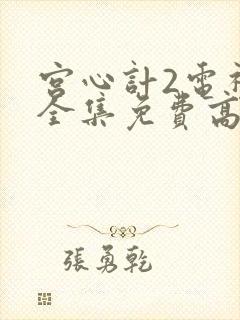 宮心計2電視
全集免費高
張勇乾